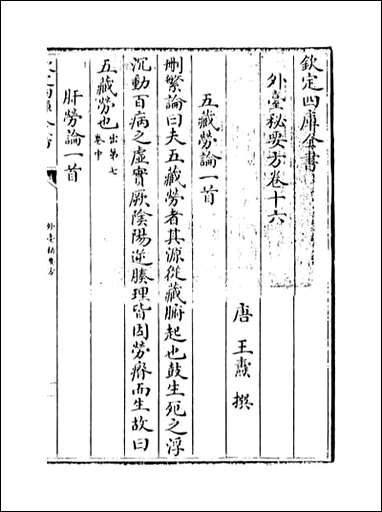 欽定四庫全書
外臺秘要方卷十六
唐 王燾 撰
五藏勞論一首
刪繁論曰夫五藏勞者其源從藏腑起也鼓生死之浮
沉動百病之虛實厥陰陽逆腠理皆因勞瘠而生故曰
五藏勞也出第七卷中
肝勞論一首
外臺秘要方